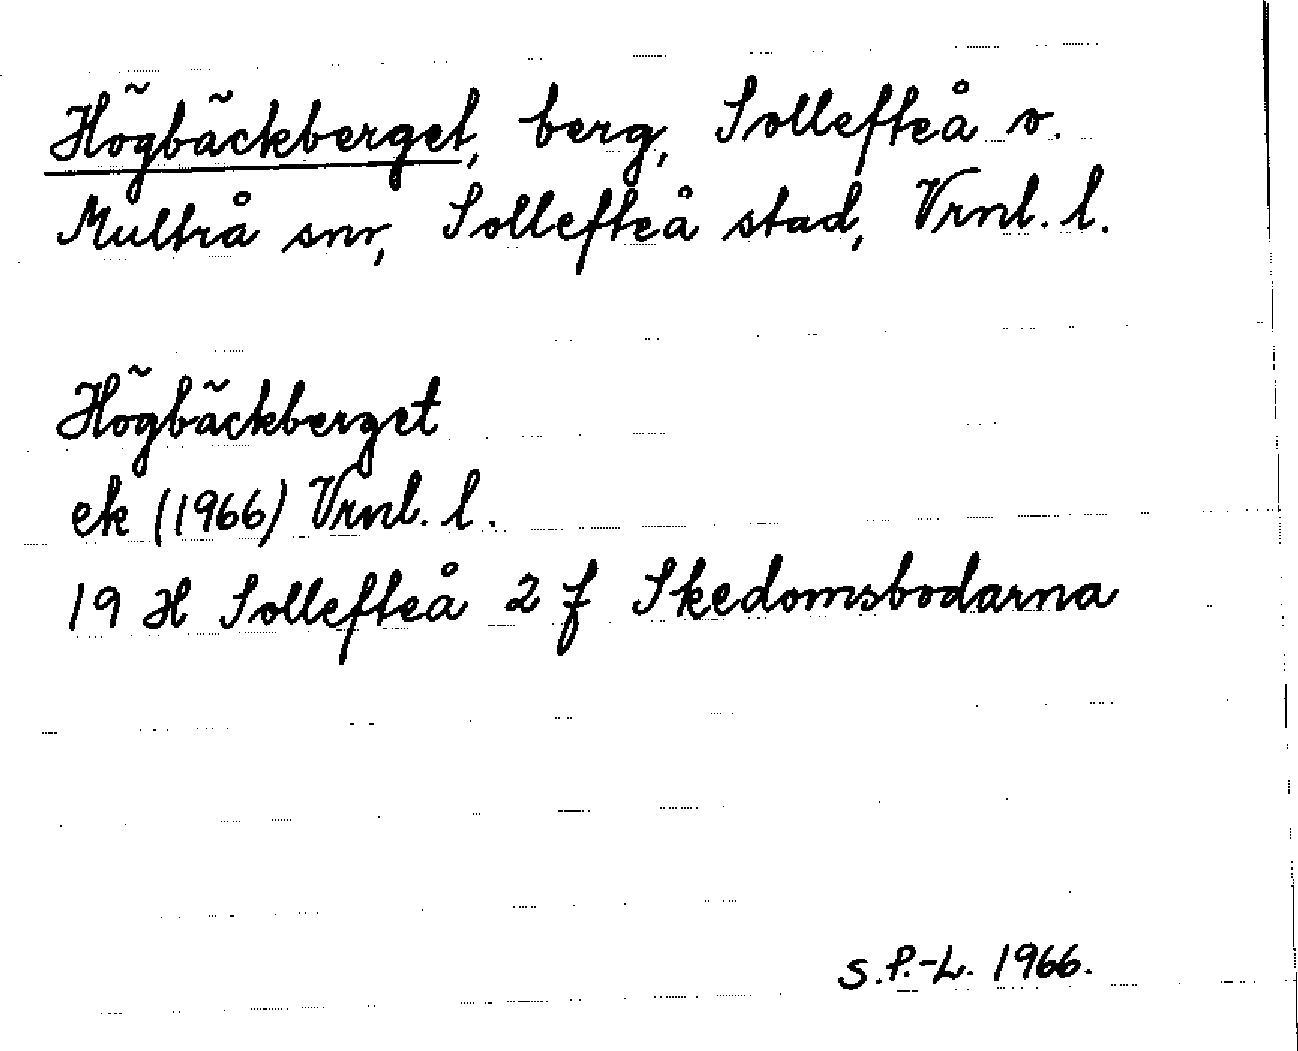 Högbäckberget, berg, Sollefteå o.
Multrå snr, Sollefteå stad, Vrnl. l.
Högbäckberget
ek (1966) Vrnl. l.
19 H Sollefteå 2 f Skedomsbodarna
S.P.-L. 1966.